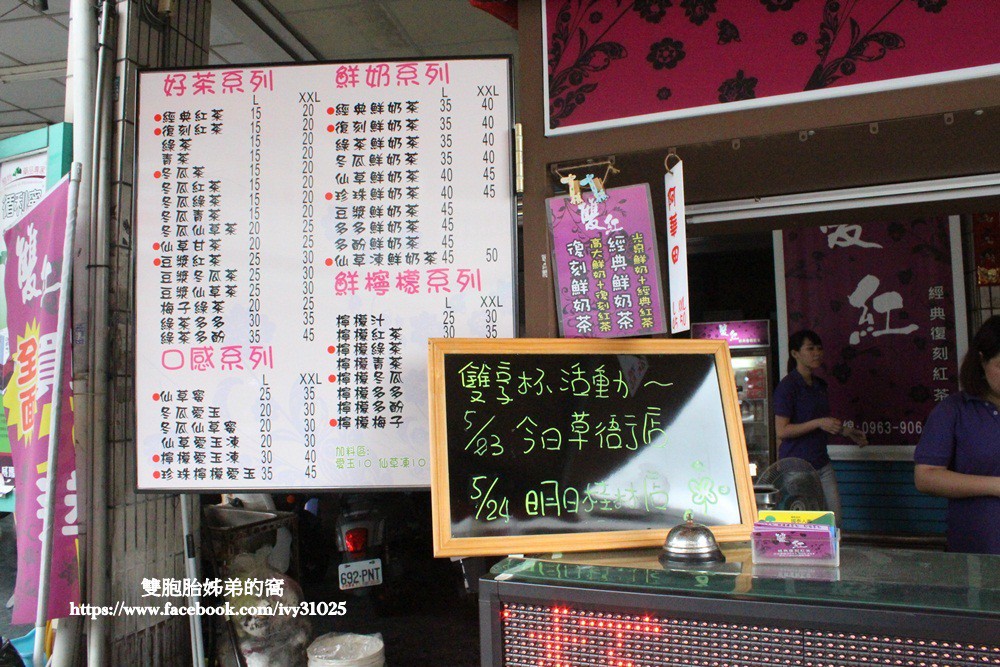 好茶系列
L XXL
經典紅茶 15 20
復刻紅茶 15 20
綠茶 15 20
青茶 15 20
冬瓜茶 15 20
冬瓜紅茶 15 20
冬瓜綠茶 15 20
冬瓜青茶 15 20
冬瓜仙草茶 20 25
仙草甘茶 20 25
豆漿紅茶 20 30
豆漿冬瓜茶 25 30
豆漿仙草茶 25 30
梅子綠茶 20 25
綠茶多多 30 35
綠茶多酚 30 35
口感系列
L XXL
仙草蜜 25 35
冬瓜愛玉 20 30
冬瓜仙草蜜 20 30
仙草愛玉凍 20 30
檸檬愛玉 30 40
珍珠檸檬愛玉 35 45
鮮奶系列
L XXL
經典鮮奶茶 35 40
復刻鮮奶茶 35 40
綠茶鮮奶茶 35 40
冬瓜鮮奶茶 35 40
仙草鮮奶茶 40 45
珍珠鮮奶茶 40 45
豆漿鮮奶茶 45
多多鮮奶茶 45
多酚鮮奶茶 45
仙草凍鮮奶茶 45 50
鮮檸檬系列
L XXL
檸檬汁 30 40
檸檬紅茶 30
檸檬綠茶
檸檬青茶
檸檬冬瓜
檸檬多多
檸檬多酚
檸檬梅子
加料區:
愛玉10 仙草凍10
雙享杯活動~
5/23 今日草衙店
5/24 明日
雙紅
光泉鮮奶+經典紅茶
經典鮮奶茶
高大鮮奶+復刻紅茶
復刻鮮奶茶
阿華田
雙紅
經典復刻紅茶
0963-906
雙紅
全面
692-PNT
雙紅
雙胞胎姊弟的窩
https://www.facebook.com/ivy31025